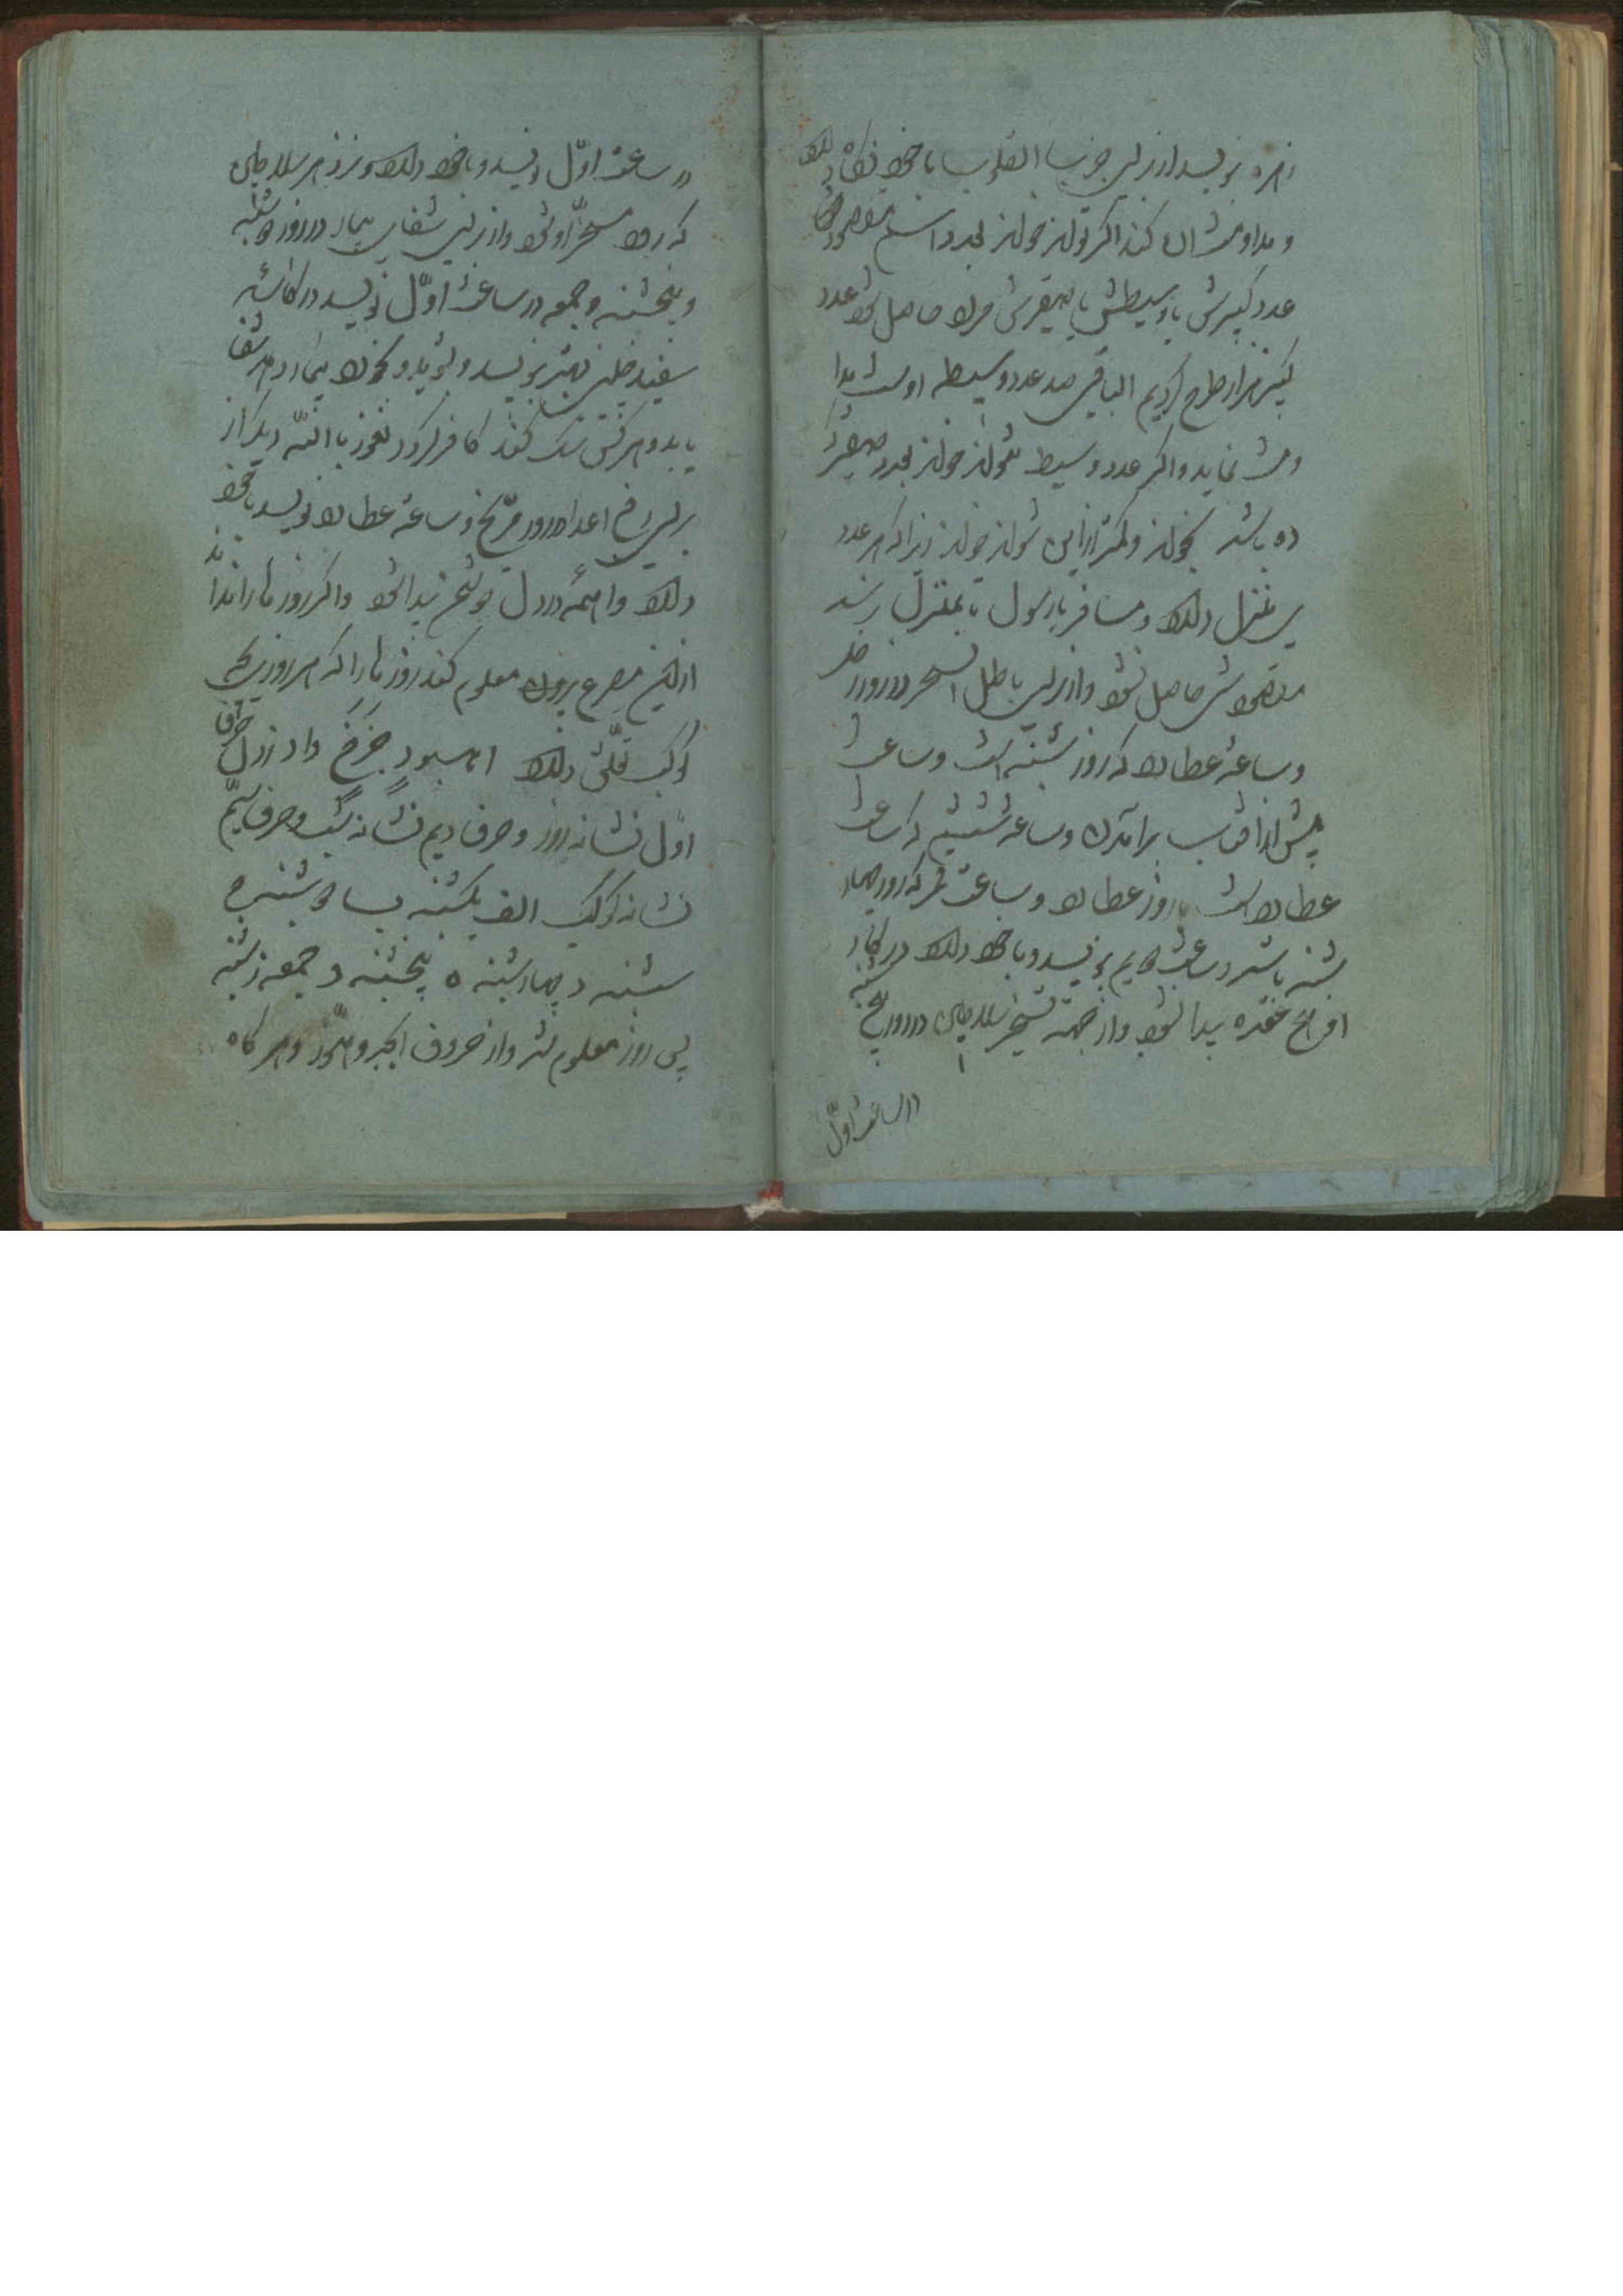 زهره نویسد از برای جذب القلوب با خود نگاه دارد
و مداومت آن کند اگر تواند خواند بعدد اسم مقصود خود
عدد کبیرش یا وسیطش یا صغیرش مراد حاصل شود عدد
کبیر هزار طرح کردیم الباقی صد عدد وسیطه اوست مدا
ومت نماید و اگر عدد وسیط نتواند خواند بعدد صغیر که
ده باشد بخواند و کمتر ازاین نتواند خواند زیرا که هر عدد
ی منزل دارد و مسافر تا رسول تا بمنزل نرسد
مقصودش حاصل نشود و از برای باطل السحر در روز
و ساعة عطارد که روز شنبه است و ساعت
پیش از آفتاب برآمدن و ساعة ششم که ساعت
عطارد است یا روز عطارد و ساعت قمر که روز چهار
شنبه باشد و ساعت دویم نویسد و با خود دارد در کار
او هیچ عقده پیدا نشود و از جهة تسخیر سلاطین در روز پنج شنبه
در ساعت اول
در ساعت اوّل نویسد و با خود دارد و نزد هر سلاطین
که رود مسخّر او شود و از برای شفای بیمار در روز دوشنبه
و پنجشنبه و جمعه در ساعت اوّل نویسد در کاسهٔ
سفید چینی بهتر نویسد و بشوید و بخورد بیمار دهد شفا
یابد و هر کس شک کند کافر گردد نعوذ باالله دیگر از
برای رفع اعدا در روز مرّیخ و ساعة عطارد نویسد با خود
دارد واهمهٔ در دل دشمن پیدا شود و اگر روزها را نداند
از این مصرع بیرون معلوم کند روزها را که هر روزی بچه
کوکب تعلّق دارد حرف
اوّل نشانه روز و حرف دویم نشانه شب و حرف سیّم
نشانه کوکب الف یکشنبه ب دوشنبه ج
سشنبه د چهارشنبه ه پنجشنبه و جمعه ز شنبه
پس روز معلوم شد و از حروف ابجد و هوّز و هر کاه